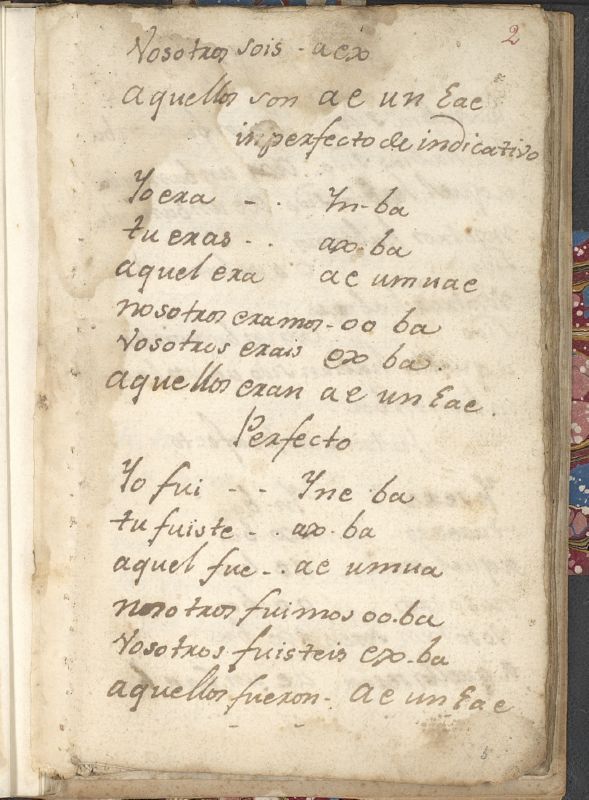 2
Vosotros sois - aex
aquellos son ae un Eae
inperfecto de indicativo
Yo era - . Yn-ba
tu eras - . ax-ba
aquel era ae umuae
nosotros eramos - oo ba
Vosotros erais ex ba.
aquellos eran ae un Eae.
Perfecto
Yo fui - - Yne ba
tu fuiste - . ax-ba
aquel fue - . ae umua
nosotros fuimos oo.ba
Vosotros fuisteis ex-ba
aquellos fueron - ae un Eae